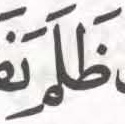 ظَلَمَ نَفْ